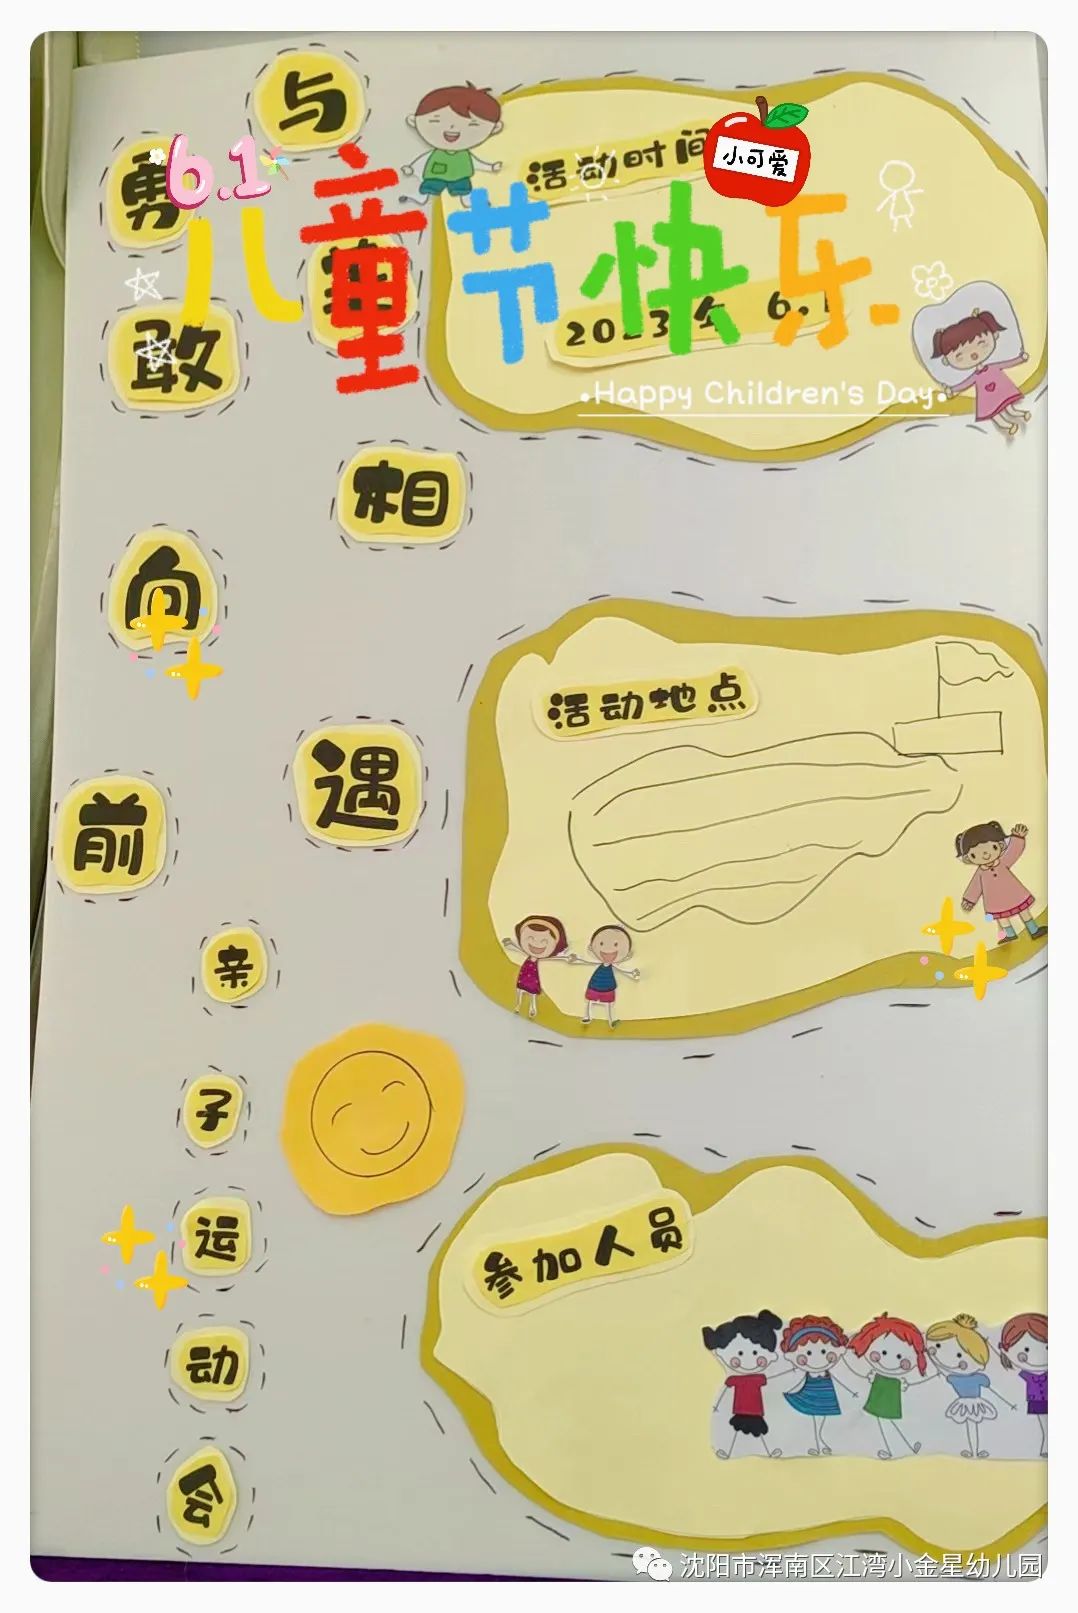 6.1
儿童节快乐
小可爱
Happy Children's Day
勇敢向前
与
相遇
亲子运动会
活动时间
2023年 6.1
活动地点
参加人员
沈阳市浑南区江湾小金星幼儿园